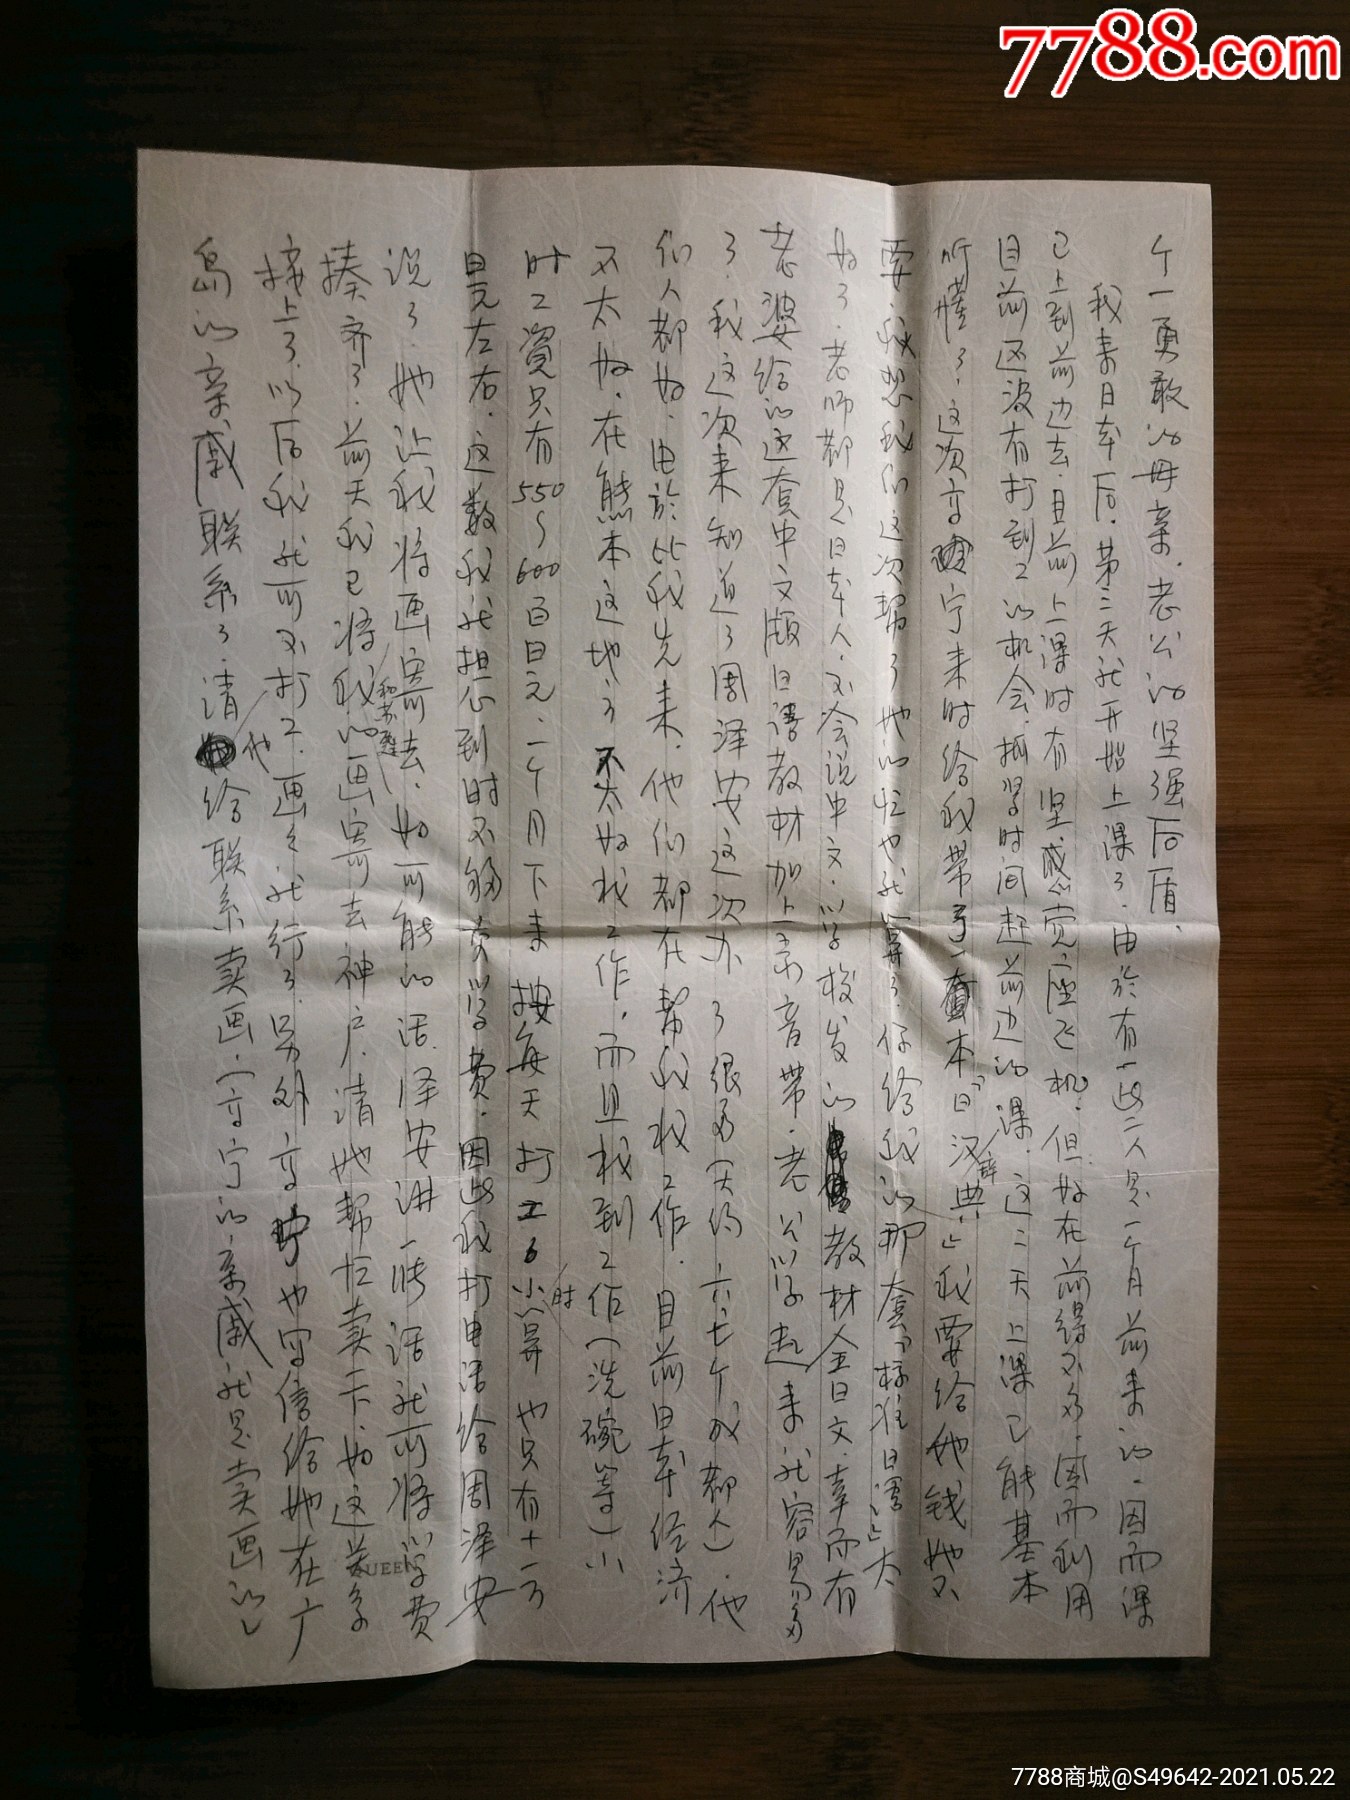 7788.com
个一勇敢的母亲.老公的坚强后盾、
我来日本后.第三天就开始上课了.由於有一些人是一个月前来的.因而课
已上到前边去.目前上课时有坚感觉座飞机.但好在前得不多.因而利用
目前还没有打到工的机会.抓紧时间赶前边的课.这二天上课已能基本
听懂了.这次亨宁来时给我带了一本「日汉辞典」我要给他钱她不
要.我想我们这次帮了她的忙也就算了.你给我的那套「标准日语」太
好了.老师都是日本人.不会说中文.学校发的教材全日文.幸而有
老婆给的这套中文版日语教材加上录音带.老公学起来就容易多
了.我这次来知道了周泽安这次办了很多(大约六.七个成都人).他
们人都好.由於比我先来.他们都在帮我找工作.目前日本经济
不太好.在熊本这地方不太好找工作.而且找到工作(洗碗等)小
时工資只有550～600百日元.一个月下来按每天打工6小时算也只有十一万
日元左右.这数我就担心到时不够交学费.因此我打电话给周泽安
说了.她让我将画寄去.如可能的话.泽安讲一听话就可将学费
揍齐了.前天我已将我的和苏画寄去神户.请她帮忙卖一下.如这关系
接上了.以后我就可不打工.画画就行了.另外亨宁也写信给她在广
岛的亲戚联系了.请他给联系卖画.(亨宁的亲戚就是卖画的)
QUEEN
7788商城@S49642-2021.05.22